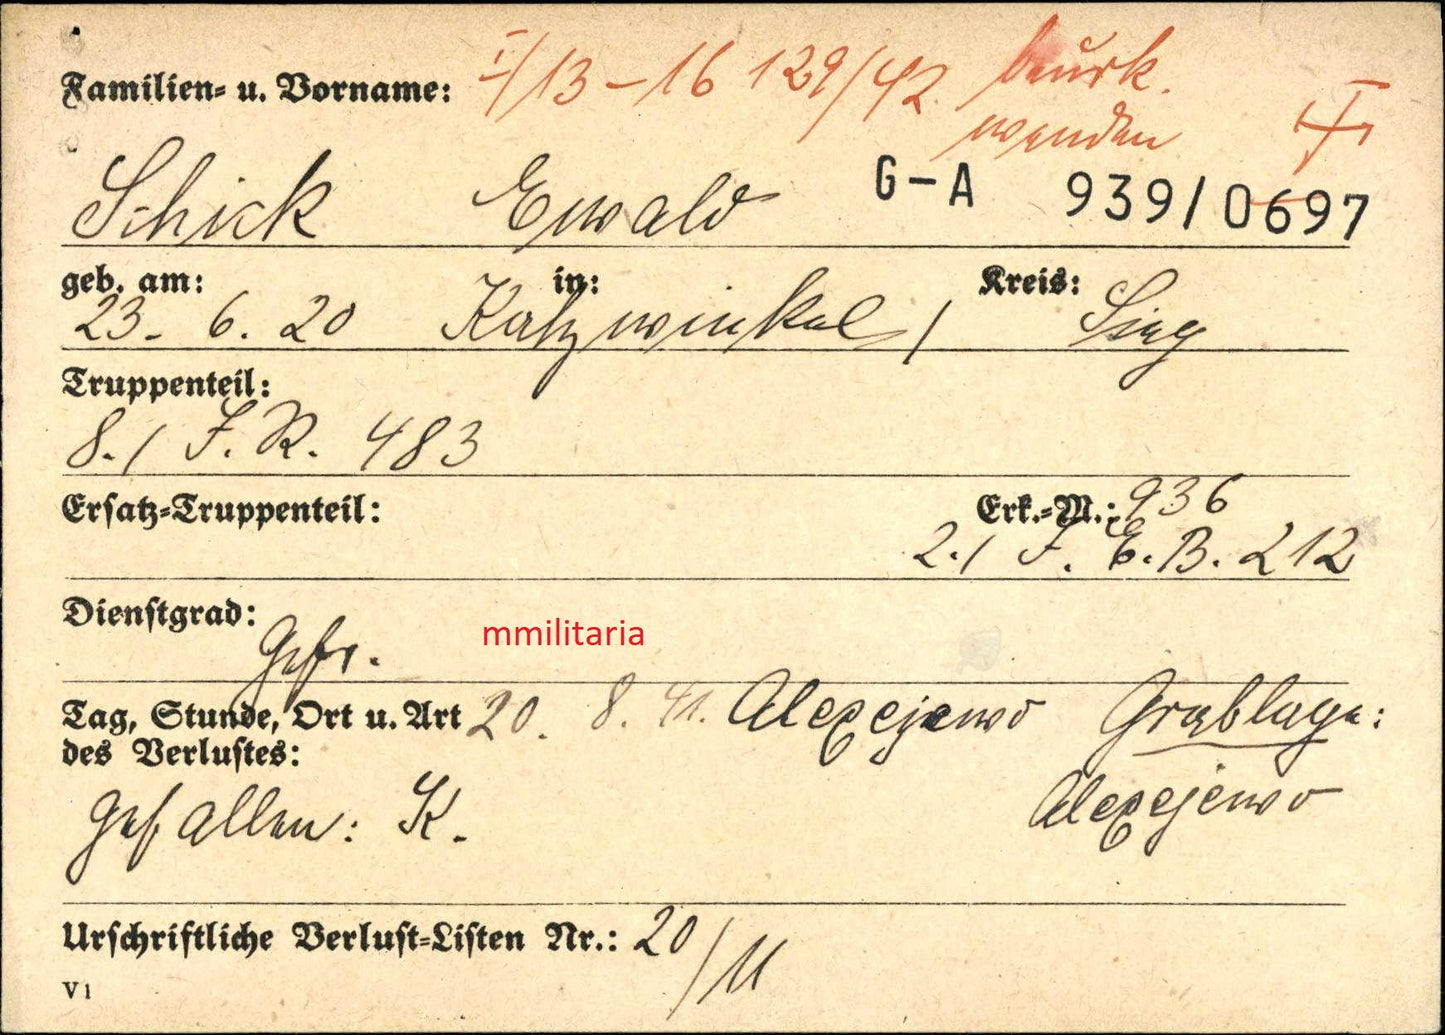 Familien- u. Vorname: I/13 – 16 129/42 beurk.
wenden
Schick Ewald G-A 939/0697
geb. am: in: Kreis:
23. 6. 20 Katzwinkel / Sieg
Truppenteil:
8./ I.R. 483
Ersatz-Truppenteil: Erk.-M.: 936
2./ I. E.B. 212
Dienstgrad:
Gefr.
mmilitaria
Tag, Stunde, Ort u. Art 20. 8. 41. Alexejewo Grablage:
des Verlustes:
Gefallen: K. Alexejewo
Urschriftliche Verlust-Listen Nr.: 20/11
V1